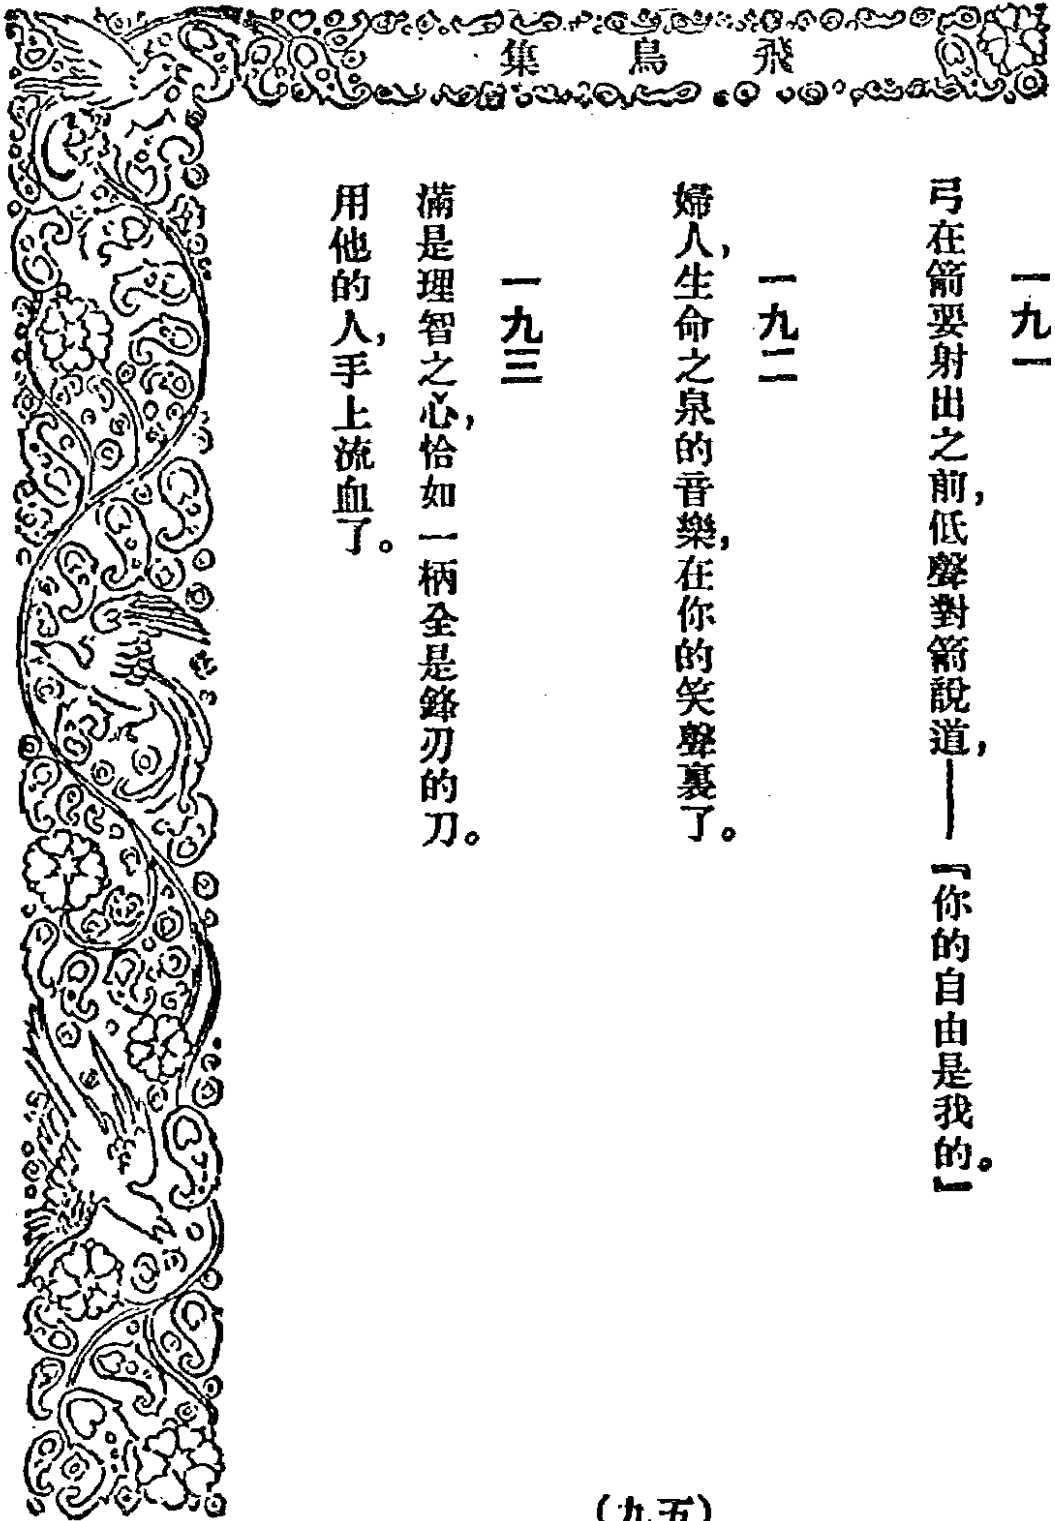 飛鳥集
一九一
弓在箭要射出之前，低聲對箭說道，——『你的自由是我的。』
一九二
婦人，生命之泉的音樂，在你的笑聲裏了。
一九三
滿是理智之心，恰如一柄全是鋒刃的刀。
用他的人，手上流血了。
(九五)